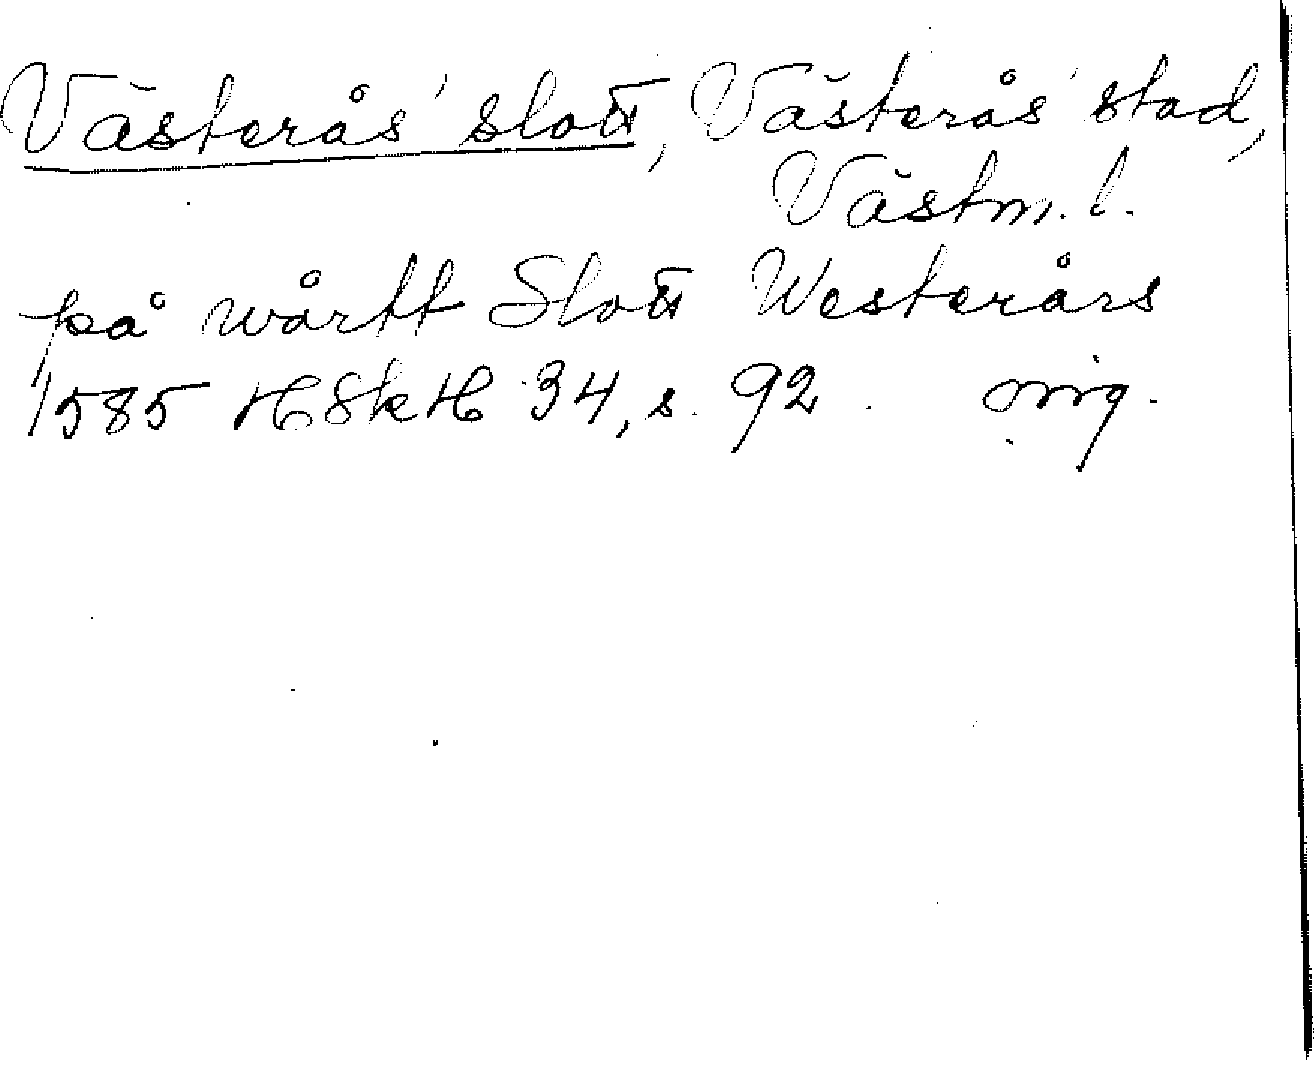 Västerås' slott, Västerås' stad,
Västm. l.
på wårtt Slott Westerårs
1585 HSkH 34, s. 92. orig.